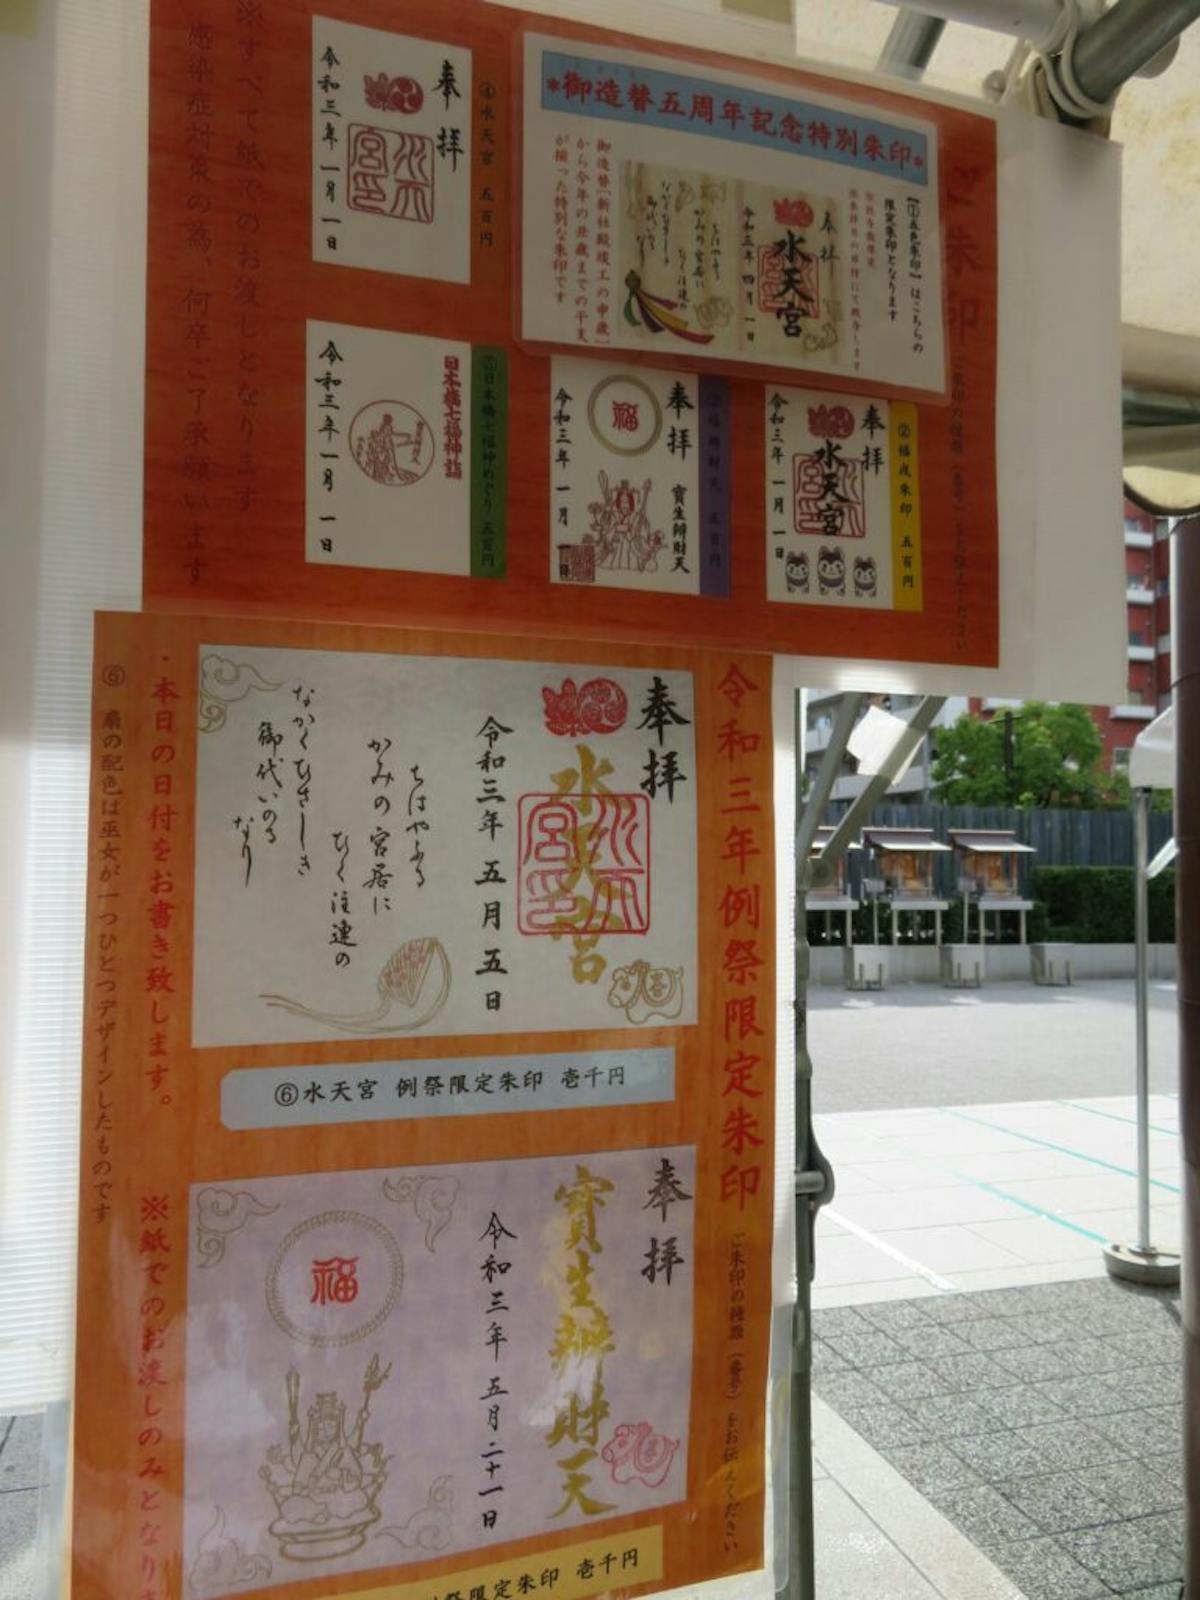 ＊御造替五周年記念特別朱印＊
【①五色朱印】はこちらの
限定朱印となります
御造替「新社殿竣工の申歳」
から今年の丑歳までの干支
が揃った特別な朱印です
奉拝
水天宮
令和三年四月一日
④水天宮 五百円
奉拝
令和三年一月一日
※すべて紙でのお渡しとなります
感染症対策の為、何卒ご了承願います
②福戌朱印 五百円
奉拝
水天宮
令和三年一月一日
奉拝
福
寳生辨財天
令和三年一月一日
⑤日本橋七福神めぐり 五百円
日本橋七福神詣
令和三年一月一日
令和三年例祭限定朱印
ご朱印の種類（番号）をお伝えください
奉拝
水天宮
令和三年五月五日
ちはやふる
かみの宮居に
ひく注連の
なかくひさしき
御代いのるなり
⑥水天宮 例祭限定朱印 壱千円
奉拝
寳生辨財天
令和三年五月二十一日
福
祭限定朱印 壱千円
・本日の日付をお書き致します。
※紙でのお渡しのみとなりま
⑥ 扇の配色は巫女が一つひとつデザインしたものです